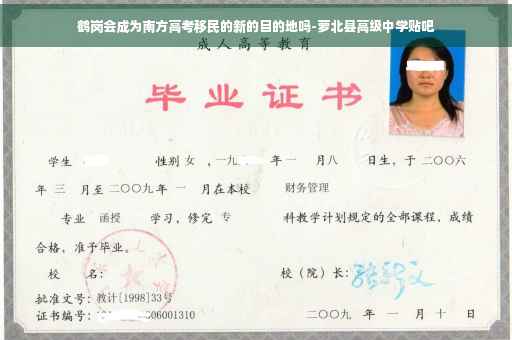 鹤岗会成为南方高考移民的新的目的地吗-萝北县高级中学贴吧
成人高等教育
毕业证书
学生 性别 女 ，一九 年 一 月八 日生，于 二〇〇六
年 三 月至 二〇〇九 年 一 月在本校 财务管理
专业 函授 学习，修完 专 科教学计划规定的全部课程，成绩
合格，准予毕业。
校 名： 校（院）长：
批准文号：教计[1998]33号
证书编号： 06001310 二〇〇九 年 一 月 十 日